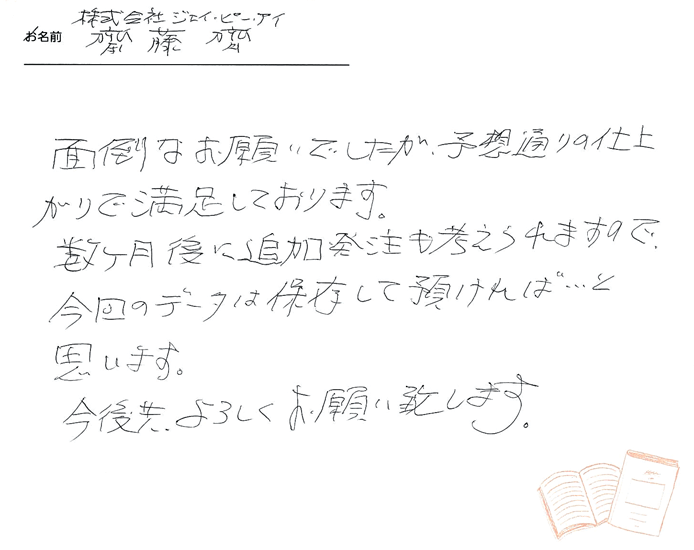 株式会社ジェイ・ピー・アイ
お名前 齋藤 齋
面倒なお願いでしたが、予想通りの仕上
がりで満足しております。
数ヶ月後に追加発注も考えられますので、
今回のデータは保存して預ければ…と
思います。
今後共、よろしくお願い致します。